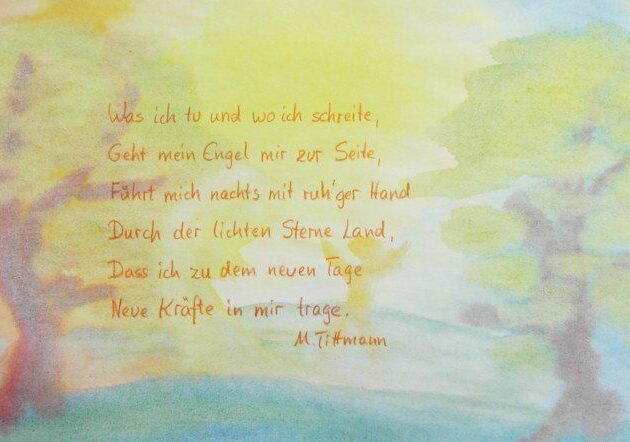 Was ich tu und wo ich schreite,
Geht mein Engel mir zur Seite,
Führt mich nachts mit ruh'ger Hand
Durch der lichten Sterne Land,
Dass ich zu dem neuen Tage
Neue Kräfte in mir trage.
M. Tittmann